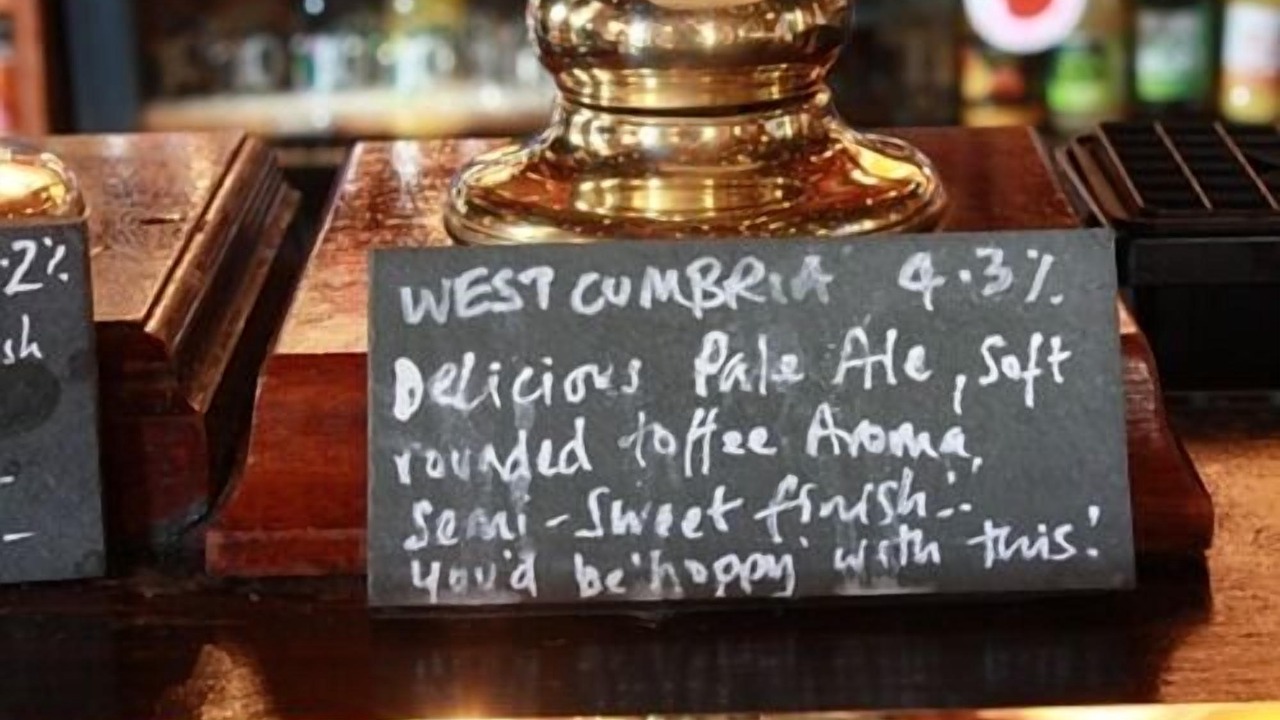 WEST CUMBRIA 4.3%
Delicious Pale Ale, Soft
rounded toffee Aroma,
Semi-Sweet finish..
you'd be 'hoppy' with this!
.2%
sh